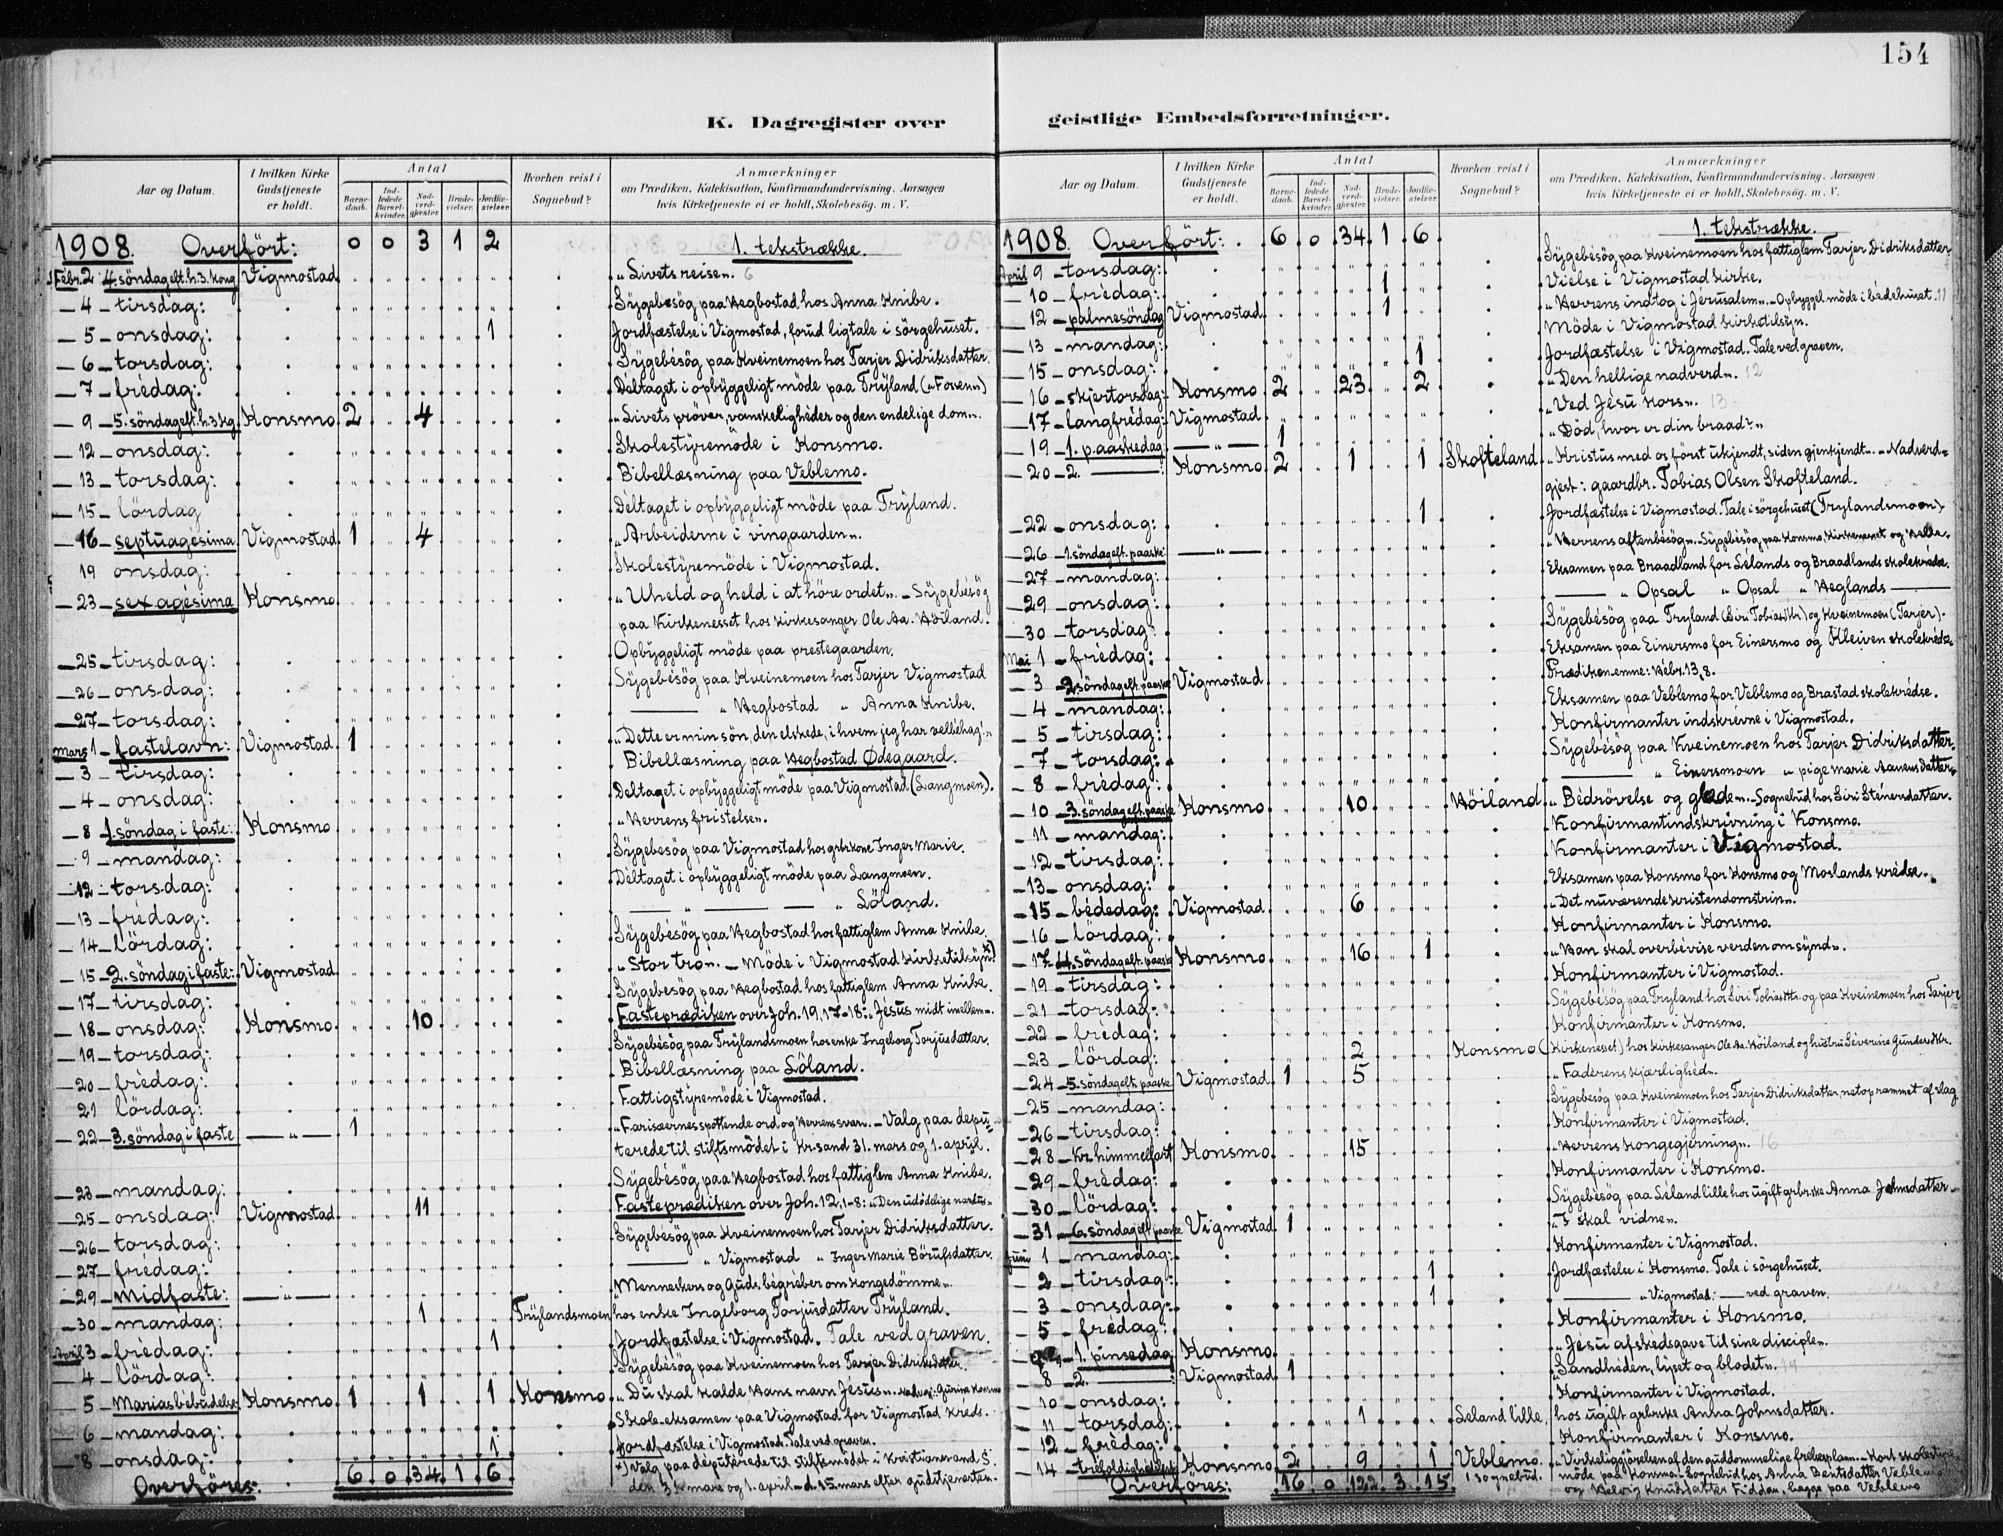 154
K. Dagregister over
Aar og Datum. I hvilken Kirke Gudstjeneste er holdt. Antal Barnedaab. Indledede Barselkvinder. Nadverdgjæster. Brudevielser. Jordfæstelser. Hvorhen reist i Sognebud? Anmærkninger om Prædiken, Katekisation, Konfirmandundervisning, Aarsagen hvis Kirketjeneste ei er holdt, Skolebesøg. m. V.
1908. Overført: 0 0 3 1 2 1. tekstrække.
Febr. 2 4. söndag eft. h. 3. kong Vigmostad „Livets reise". 6
4 tirsdag: Sygebesög paa Hegbostad hos Anna Knibe.
5 onsdag: 1 Jordfæstelse i Vigmostad, forud ligtale i sörgehuset.
6 torsdag: Sygebesög paa Kveinemoen hos Tarjer Didriksdatter.
7 fredag: Deltaget i opbyggeligt möde paa Tryland („Fossen")
9 5. söndag eft. h. 3 kg Konsmo 2 4 „Livets pröver, vanskeligheder og den endelige dom".
12 onsdag: Skolestyremöde i Konsmo.
13 torsdag: Bibellæsning paa Veblemo.
15 lördag Deltaget i opbyggeligt möde paa Tryland.
16 septuagésima Vigmostad 1 4 „Arbeiderne i vingaarden".
19 onsdag: Skolestyremöde i Vigmostad.
23 sexagésima Konsmo „Uheld og held i at höre ordet". – Sygebesög
paa Kirkenesset hos kirkesanger Ole Aa. Höiland.
25 tirsdag: Opbyggeligt möde paa prestegaarden.
26 onsdag: Sygebesög paa Kveinemoen hos Tarjer Vigmostad
27 torsdag: — „ Hegbostad „ Anna Knibe.
Mars 1 fastelavn: Vigmostad 1 „Dette er min sön, den elskede, i hvem jeg har velbehag".
3 tirsdag: Bibellæsning paa Hegbostad Ødegaard.
4 onsdag: Deltaget i opbyggeligt möde paa Vigmostad (Langmoen).
8 1. söndag i faste: Konsmo „Herrens fristelse".
9 mandag: Sygebesög paa Vigmostad hos grbrkone Inger Marie.
12 torsdag: Deltaget i opbyggeligt möde paa Langmoen.
13 fredag: — „ — — „ Löland.
14 lördag: Sygebesög paa Hegbostad hos fattiglem Anna Knibe.
15 2. söndag i faste: Vigmostad „Stor tro". – Möde i Vigmostad kirketilsyn*)
17 tirsdag: Sygebesög paa Hegbostad hos fattiglem Anna Knibe.
18 onsdag: Konsmo 10 Fasteprædiken over Joh. 19, 17–18: „Jesus midt imellem".
19 torsdag: Sygebesög paa Trylandsmoen hos enke Ingeborg Torjusdatter.
20 fredag: Bibellæsning paa Löland.
21 lördag: Fattigstyremöde i Vigmostad.
22 3. söndag i faste —„— 1 „Farisæernes spottende ord og Herrens svar". – Valg paa depu-
terede til stiftsmödet i Kr.sand 31. mars og 1. april.
23 mandag: Sygebesög paa Hegbostad hos fattiglem Anna Knibe.
25 onsdag: Vigmostad 11 Fasteprædiken over Joh. 12, 1–8: „Den udödelige nardus"
26 torsdag: Sygebesög paa Kveinemoen hos Tarjer Didriksdatter.
27 fredag: — „ Vigmostad „ Inger Marie Börufsdatter.
29 Midfaste: —„— „Menneskers og Guds begreber om kongedömme".
30 mandag: 1 Trylandsmoen hos enke Ingeborg Torjusdatter Tryland.
April 3 fredag: 1 Jordfæstelse i Vigmostad. Tale ved graven.
4 lördag: Sygebesög paa Kveinemoen hos Tarjer Didriksdatter.
5 Marias bebudelse Konsmo 1 1 1 Konsmo „Du skal kalde Hans navn Jésus". Nadvgj: Gurine Konsmo
6 mandag: Skole-eksamen paa Vigmostad for Vigmostad kreds.
8 onsdag: 1 Jordfæstelse i Vigmostad. Tale ved graven.
Overföres: 6 0 34 1 6 *) Valg paa deputerede til stiftsmödet i Kristianssand S.
den 31. mars og 1. april – d. 15. mars efter gudstjenesten.
geistlige Embedsforretninger.
Aar og Datum. I hvilken Kirke Gudstjeneste er holdt. Antal Barnedaab. Indledede Barselkvinder. Nadverdgjæster. Brudevielser. Jordfæstelser. Hvorhen reist i Sognebud? Anmærkninger om Prædiken, Katekisation, Konfirmandundervisning. Aarsagen hvis Kirketjeneste ei er holdt, Skolebesøg. m. V.
1908. Overfört: 6 0 34 1 6 1. tekstrække.
April 9 torsdag: Sygebesög paa Kveinemoen hos fattiglem Tarjer Didriksdatter.
10 fredag: 1 Vielse i Vigmostad kirke.
12 palmesöndag Vigmostad 1 „Herrens indtog i Jerusalem". – Opbyggel. möde i bedehuset. 11
13 mandag: Möde i Vigmostad kirketilsyn.
15 onsdag: 1 Jordfæstelse i Vigmostad. Tale ved graven.
16 skjertorsdag: Konsmo 2 23 2 „Den hellige nadverd". 12
17 langfredag: Vigmostad „Ved Jésu kors". 13
19 1. paaskedag —„— 1 „Död, hvor er din braad?"
20 2. — Konsmo 2 1 1 Skofteland „Kristus med os först ukjendt, siden gjenkjendt". – Nadverd-
gjest: gaardbr. Tobias Olsen Skofteland.
22 onsdag: 1 Jordfæstelse i Vigmostad. Tale i sörgehuset (Trylandsmoen).
26 1. söndag eft. paaske —„— „Herrens aftenbesög". – Sygebesög paa Konsmo, Kirkenesset og
27 mandag: Eksamen paa Braadland for Sélands og Braadlands skolekredse.
29 onsdag: — „ Opsal „ Opsal „ Heglands —
30 torsdag: Sygebesög paa Tryland (Siri Tobias ) og Kveinemoen (Tarjer).
Mai 1 fredag: Eksamen paa Einersmo for Einersmo og Kleiven skolekredse
3 2. söndag eft. paaske Vigmostad Prædikenemne: Hebr. 13, 8.
4 mandag: Eksamen paa Veblemo for Veblemo og Brastad skolekredse.
5 tirsdag: Konfirmanter indskrevne i Vigmostad.
7 torsdag: Sygebesög paa Kveinemoen hos Tarjer Didriksdatter.
8 fredag: — „ Einersmoen „ pige Marie Aanensdatter.
10 3. söndag eft. paaske Konsmo 10 Höiland „Bedrövelse og glæde". – Sognebud hos Siri Sténersdatter.
11 mandag: Konfirmantindskrivning i Konsmo.
12 tirsdag: Konfirmanter i Vigmostad.
13 onsdag: Eksamen paa Konsmo for Konsmo og Moslands kredse.
15 bededag: Vigmostad 6 „Det nuværende kristendomstrin".
16 lördag: Konfirmanter i Konsmo.
17 4. söndag eft. paaske Konsmo 16 1 „Han skal overbevise verden om synd".
19 tirsdag: Konfirmanter i Vigmostad.
21 torsdag: Sygebesög paa Tryland hos Siri Tobias og paa Kveinemoen hos Tarjer
22 fredag: Konfirmanter i Konsmo.
23 lördag: 2 Konsmo (Kirkenesset) hos kirkesanger Ole Aa. Höiland og hustru Séverine
24 5. söndag eft. paaske Vigmostad 1 5 „Faderens kjærlighed".
25 mandag: Sygebesög paa Kveinemoen hos Tarjer Didriksdatter, netop rammet af slag.
26 tirsdag: Konfirmanter i Vigmostad.
28 Kr. himmelfart Konsmo 15 „Herrens kongegjerning". 16
29 fredag: Konfirmanter i Konsmo.
30 lördag: Sygebesög paa Séland lille hos ugift grbrske Anna Johnsdatter
31 6. söndag eft. paaske Vigmostad 1 „I skal vidne".
Juni 1 mandag: Konfirmanter i Vigmostad.
2 tirsdag: 1 Jordfæstelse i Konsmo. Tale i sörgehuset.
3 onsdag: 1 — „ Vigmostad. — ved graven.
5 fredag: Konfirmanter i Konsmo.
1. pinsedag Konsmo „Jésu afskedsgave til sine disciple".
8 2. — Vigmostad 1 „Sandheden, lyset og blodet".
10 onsdag: Konfirmanter i Vigmostad.
11 torsdag: 1 Seland lille. hos ugift grbrske Anna Johnsdatter.
12 fredag: Konfirmanter i Konsmo.
14 trefoldighedsfest Konsmo 2 9 1 Veblemo. „Virkeliggjörelsen af den guddommelige frelsesplan". – Kort skolestyre-
Overföres: 16 0 122 3 15. 1 sognebud. möde paa Konsmo. – Sognebud hos Anna Bentsdatter Veblemo
og Helvig Knudsdatter Fiddan, begge paa Veblemo